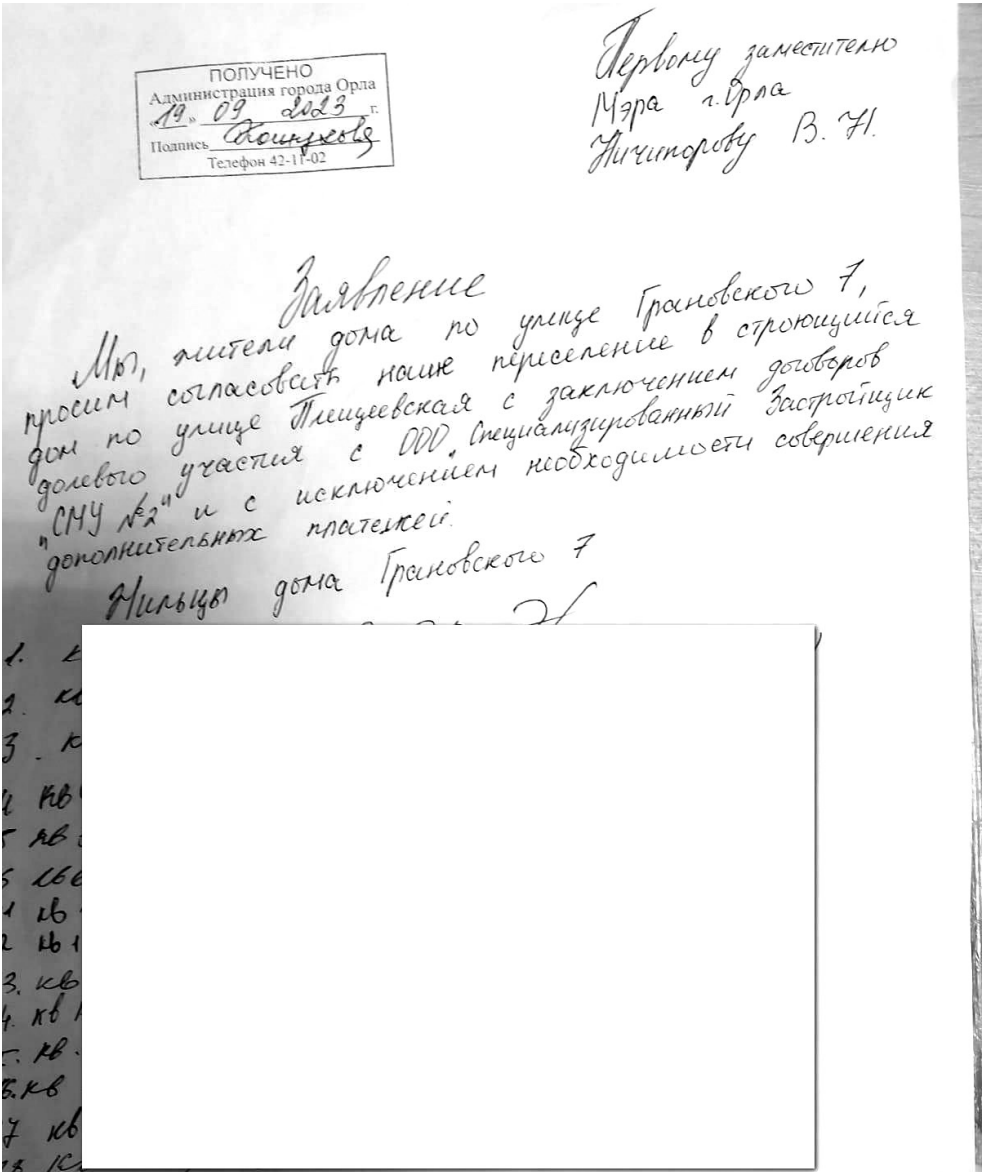 ПОЛУЧЕНО
Администрация города Орла
«19» 09 2023 г.
Подпись
Телефон 42-11-02
Первому заместителю
Мэра г. Орла
Ничипорову В. Н.
Заявление
Мы, жители дома по улице Грановского 7,
просим согласовать наше переселение в строющийся
дом по улице Плещеевская с заключением договоров
долевого участия с ООО "Специализированный Застройщик
"СМУ №2" и с исключением необходимости совершения
дополнительных платежей.
Жильцы дома Грановского 7
1. к
2. кв
3. к
4 кв
5 кв
кв
1 кв
2 кв 1
3. кв
4. кв
кв.
6. кв
7 кв
18 к